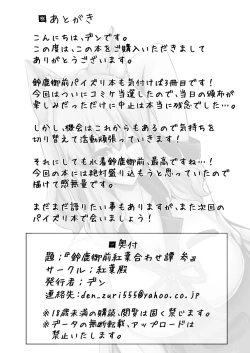 ■あとがき
こんにちは、デンです。
この度は、この本をご購入いただきまして
ありがとうございます。
鈴鹿御前パイズリ本も気付けば3冊目です！
今回はついにコミケ当選したので、当日の頒布が
楽しみだっただけに中止は本当に残念でした…。
しかし、機会はこれからもあるので気持ちを
切り替えて活動頑張っていきます！
それにしても水着鈴鹿御前、最高ですね…！
今回の本には絶対盛り込もうと思っていたので
描けて感無量です。
まだまだ語りたい事もありますが、また次回の
パイズリ本で会いましょう！
■奥付
題：『鈴鹿御前紅葉合わせ譚 参』
サークル：紅葉殿
発行者：デン
連絡先:den_zuri555@yahoo.co.jp
※18歳未満の購読、閲覧は固く禁じます。
※データの無断転載、アップロードは
禁止いたします。